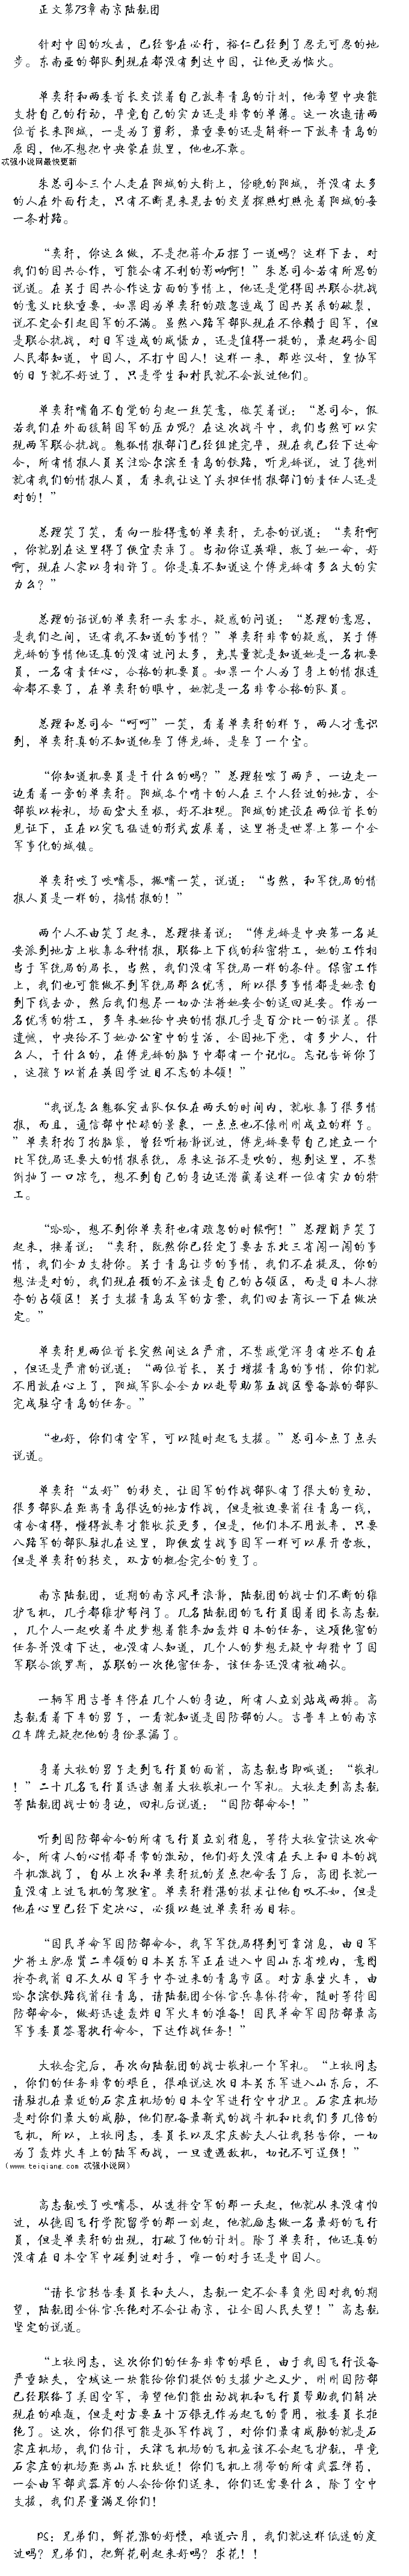 正文第73章南京陆航团
针对中国的攻击，已经势在必行，裕仁已经到了忍无可忍的地
步。东南亚的部队到现在都没有到达中国，让他更为恼火。
单奕轩和两委首长交谈着自己放弃青岛的计划，他希望中央能
支持自己的行动，毕竟自己的实力还是非常的单薄。这一次邀请两
位首长来阳城，一是为了剪彩，最重要的还是解释一下放弃青岛的
原因，他不想把中央蒙在鼓里，他也不敢。
忒强小说网最快更新
朱总司令三个人走在阳城的大街上，傍晚的阳城，并没有太多
的人在外面行走，只有不断晃来晃去的交差探照灯照亮着阳城的每
一条村路。
“奕轩，你这么做，不是把蒋介石摆了一道吗？这样下去，对
我们的国共合作，可能会有不利的影响啊！”朱总司令若有所思的
说道。在关于国共合作这方面的事情上，他还是觉得国共联合抗战
的意义比较重要，如果因为单奕轩的疏忽造成了国共关系的破裂，
说不定会引起国军的不满。虽然八路军部队现在不依赖于国军，但
是联合抗战，对日军造成的威慑力，还是值得一提的，最起码全国
人民都知道，中国人，不打中国人！这样一来，那些汉奸，皇协军
的日子就不好过了，只是学生和村民就不会放过他们。
单奕轩嘴角不自觉的勾起一丝笑意，微笑着说：“总司令，假
若我们在外面缓解国军的压力呢？在这次战斗中，我们当然可以实
现两军联合抗战。魅狐情报部门已经组建完毕，现在我已经下达命
令，所有情报人员关注哈尔滨至青岛的铁路，听龙娇说，过了德州
就有我们的情报人员，看来我让这丫头担任情报部门的责任人还是
对的！”
总理笑了笑，看向一脸得意的单奕轩，无奈的说道：“奕轩啊
，你就别在这里得了便宜卖乖了。当初你逞英雄，救了她一命，好
啊，现在人家以身相许了。你是真不知道这个傅龙娇有多么大的实
力么？”
总理的话说的单奕轩一头雾水，疑惑的问道：“总理的意思，
是我们之间，还有我不知道的事情？”单奕轩非常的疑惑，关于傅
龙娇的事情他还真的没有过问太多，充其量就是知道她是一名机要
员，一名有责任心，合格的机要员。如果一个人为了身上的情报连
命都不要了，在单奕轩的眼中，她就是一名非常合格的队员。
总理和总司令“呵呵”一笑，看着单奕轩的样子，两人才意识
到，单奕轩真的不知道他娶了傅龙娇，是娶了一个宝。
“你知道机要员是干什么的吗？”总理轻咳了两声，一边走一
边看着一旁的单奕轩。阳城各个哨卡的人在三个人经过的地方，全
部敬以枪礼，场面宏大至极，好不壮观。阳城的建设在两位首长的
见证下，正在以突飞猛进的形式发展着，这里将是世界上第一个全
军事化的城镇。
单奕轩咬了咬嘴唇，撇嘴一笑，说道：“当然，和军统局的情
报人员是一样的，搞情报的！”
两个人不由笑了起来，总理接着说：“傅龙娇是中央第一名延
安派到地方上收集各种情报，联络上下线的秘密特工，她的工作相
当于军统局的局长，当然，我们没有军统局一样的条件。保密工作
上，我们也可能做不到军统局那么优秀，所以很多事情都是她亲自
到下线去办，然后我们想尽一切办法将她安全的送回延安。作为一
名优秀的特工，多年来她给中央的情报几乎是百分比一的误差。很
遗憾，中央给不了她办公室中的生活，全国地下党，有多少人，什
么人，干什么的，在傅龙娇的脑子中都有一个记忆。忘记告诉你了
，这孩子以前在英国学过目不忘的本领！”
“我说怎么魅狐突击队仅仅在两天的时间内，就收集了很多情
报，而且，通信部中忙碌的景象，一点点也不像刚刚成立的样子。
”单奕轩挠了挠脑袋，曾经听杨静说过，傅龙娇要帮自己建立一个
比军统局还要大的情报系统，原来这话不是吹的，想到这里，不禁
倒抽了一口凉气，想不到自己的身边还潜藏着这样一位有实力的特
工。
“哈哈，想不到你单奕轩也有疏忽的时候啊！”总理朗声笑了
起来，接着说：“奕轩，既然你已经定了要去东北三省闯一闯的事
情，我们全力支持你。关于青岛让步的事情，我们不在提及，你的
想法是对的，我们现在顾的不应该是自己的占领区，而是日本人掠
夺的占领区！关于支援青岛友军的方案，我们回去商议一下在做决
定。”
单奕轩见两位首长突然间这么严肃，不禁感觉浑身有些不自在
，但还是严肃的说道：“两位首长，关于增援青岛的事情，你们就
不用放在心上了，阳城军队会全力以赴帮助第五战区警备旅的部队
完成驻守青岛的任务。”
“也好，你们有空军，可以随时起飞支援。”总司令点了点头
说道。
单奕轩“友好”的移交，让国军的作战部队有了很大的变动，
很多部队在距离青岛很远的地方作战，但是被迫要前往青岛一线，
有舍有得，懂得放弃才能收获更多，但是，他们本不用放弃，只要
八路军的部队驻扎在这里，即使发生战事国军一样可以展开营救，
但是单奕轩的转交，双方的概念完全的变了。
南京陆航团，近期的南京风平浪静，陆航团的战士们不断的维
护飞机，几乎都维护都闷了。几名陆航团的飞行员围着团长高志航
，几个人一起吹着牛皮梦想着能参加轰炸日本的任务，这项绝密的
任务并没有下达，也没有人知道，几个人的梦想无疑中却猜中了国
军联合俄罗斯，苏联的一次绝密任务，该任务还没有被确认。
一辆军用吉普车停在几个人的身边，所有人立刻站成两排。高
志航看着下车的男子，一看就知道是国防部的人。吉普车上的南京
A车牌无疑把他的身份暴漏了。
身着大校的男子走到飞行员的面前，高志航当即喊道：“敬礼
！”二十几名飞行员迅速朝着大校敬礼一个军礼。大校走到高志航
等陆航团战士的身边，回礼后说道：“国防部命令！”
听到国防部命令的所有飞行员立刻稍息，等待大校宣读这次命
令，所有人的心情都异常的激动，他们好久没有在天上和日本的战
斗机激战了，自从上次和单奕轩玩的差点把命丢了后，高团长就一
直没有上过飞机的驾驶室。单奕轩精湛的技术让他自叹不如，但是
他在心里已经下定决心，必须以超过单奕轩为目标。
“国民革命军国防部命令，我军军统局得到可靠消息，由日军
少将土肥原贤二率领的日本关东军正在进入中国山东省境内，意图
抢夺我前日不久从日军手中夺过来的青岛市区。对方乘坐火车，由
哈尔滨铁路线前往青岛，请陆航团全体官兵集体待命，随时等待国
防部命令，做好迅速轰炸日军火车的准备！国民革命军国防部最高
军事委员签署执行命令，下达作战任务！”
大校念完后，再次向陆航团的战士敬礼一个军礼。“上校同志
，你们的任务非常的艰巨，很难说这次日本关东军进入山东后，不
请驻扎在最近的石家庄机场的日本空军进行空中护卫。石家庄机场
是对你们最大的威胁，他们配备最新式的战斗机和比我们多几倍的
飞机，所以，上校同志，委员长以及宋庆龄夫人让我转告你，一切
为了轰炸火车上的陆军而战，一旦遭遇敌机，切记不可逞强！”
（www.teiqiang.com 忒强小说网）
高志航咬了咬嘴唇，从选择空军的那一天起，他就从来没有怕
过，从德国飞行学院留学的那一刻起，他就励志做一名最好的飞行
员，但是单奕轩的出现，打破了他的计划。除了单奕轩，他还真的
没有在日本空军中碰到过对手，唯一的对手还是中国人。
“请长官转告委员长和夫人，志航一定不会辜负党国对我的期
望，陆航团全体官兵绝对不会让南京，让全国人民失望！”高志航
坚定的说道。
“上校同志，这次你们的任务非常的艰巨，由于我国飞行设备
严重缺失，空域这一块能给你们提供的支援少之又少，刚刚国防部
已经联络了美国空军，希望他们能出动战机和飞行员帮助我们解决
现在的难题，但是对方要五十万银元作为起飞的费用，被委员长拒
绝了。这次，你们很可能是孤军作战了，对你们最有威胁的就是石
家庄机场，我们估计，天津飞机场的飞机应该不会起飞护航，毕竟
石家庄的机场距离山东比较近！你们飞机上携带的所有武器弹药，
一会由军部武器库的人会给你们送来，你们还需要什么，除了空中
支援，我们尽量满足你们！
PS：兄弟们，鲜花涨的好慢，难道六月，我们就这样低迷的度
过吗？兄弟们，把鲜花刷起来好吗？求花！！